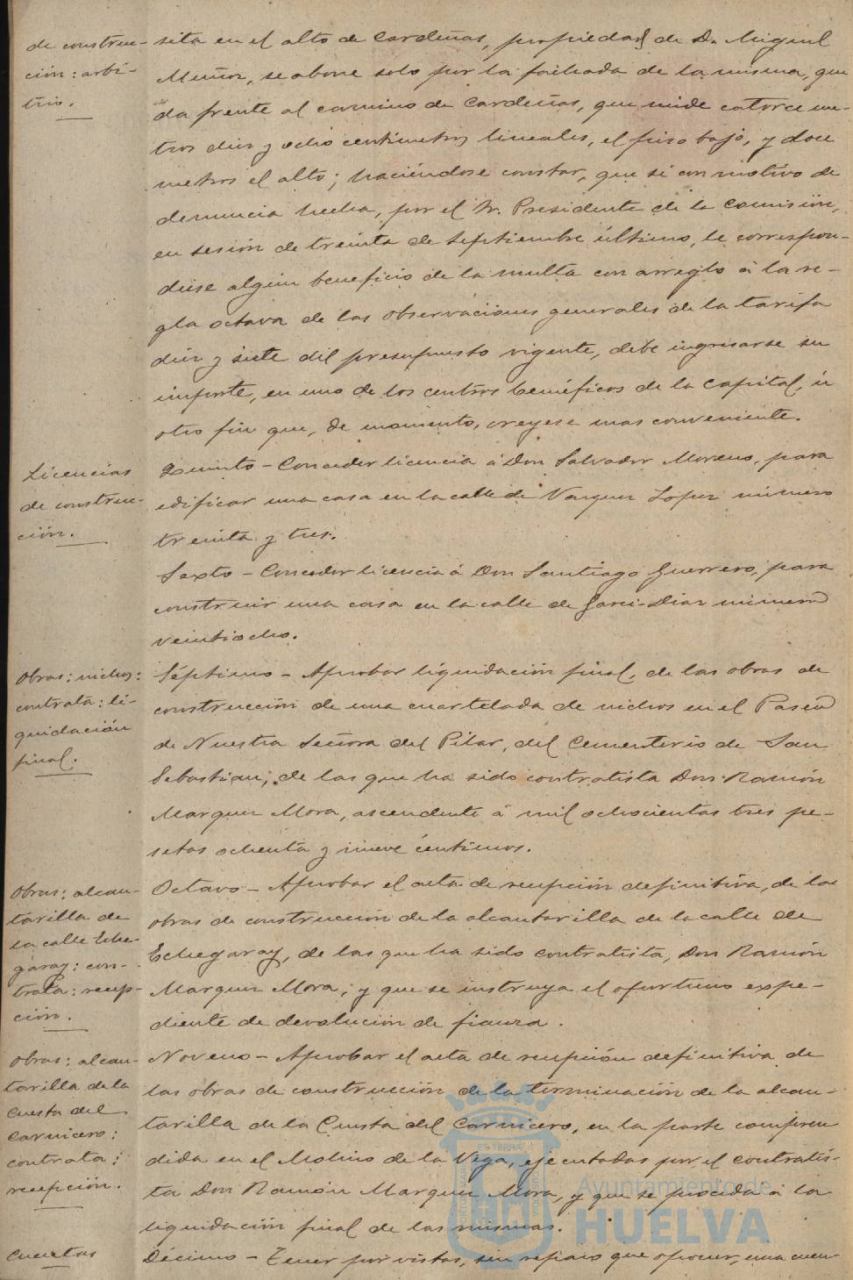 de construc-
ción: arbi-
trio.
sita en el alto de Cardeñas, propiedad de D. Miguel
Muñoz, se abone solo por la fachada de la misma, que
da frente al camino de Cardeñas, que mide catorce me-
tros diez y ocho centímetros lineales, el piso bajo, y doce
metros el alto; haciéndose constar, que si con motivo de
denuncia hecha, por el Sr. Presidente de la Comisión,
en sesión de treinta de Septiembre último, le correspon-
diese algún beneficio de la multa con arreglo á la re-
gla octava de las observaciones generales de la tarifa
diez y siete del presupuesto vigente, debe ingresarse su
importe, en uno de los centros benéficos de la Capital, ú
otro fin que, de momento, creyese mas conveniente.
Licencias
de construc-
ción.
Quinto - Conceder licencia á Don Salvador Moreno, para
edificar una casa en la calle de Vazquez Lopez número
treinta y tres.
Sexto - Conceder licencia á Don Santiago Guerrero, para
construir una casa en la calle de Garci-Diaz número
veintiocho.
Obras: nichos:
contrata: li-
quidación
final.
Séptimo - Aprobar liquidación final, de las obras de
construcción de una cuartelada de nichos en el Paseo
de Nuestra Señora del Pilar, del Cementerio de San
Sebastian; de las que ha sido contratista Don Ramón
Marquez Mora, ascendente á mil ochocientas tres pe-
setas ochenta y nueve céntimos.
Obras: alcan-
tarilla de
la calle Eche-
garay: con-
trata: recep-
ción.
Octavo - Aprobar el acta de recepción definitiva, de las
obras de construcción de la alcantarilla de la calle de
Echegaray, de las que ha sido contratista, Don Ramón
Marquez Mora; y que se instruya el oportuno expe-
diente de devolución de fianza.
Obras: alcan-
tarilla de la
Cuesta del
Carnicero:
contrata:
recepción.
Noveno - Aprobar el acta de recepción definitiva de
las obras de construcción de la terminación de la alcan-
tarilla de la Cuesta del Carnicero, en la parte compren
dida en el Molino de la Vega, ejecutadas por el contratis-
ta Don Ramón Marquez Mora, y que se proceda á la
liquidación final de las mismas.
Cuentas
Décimo - Tener por vistas, sin reparo que oponer, una cuen-
Ayuntamiento de
HUELVA